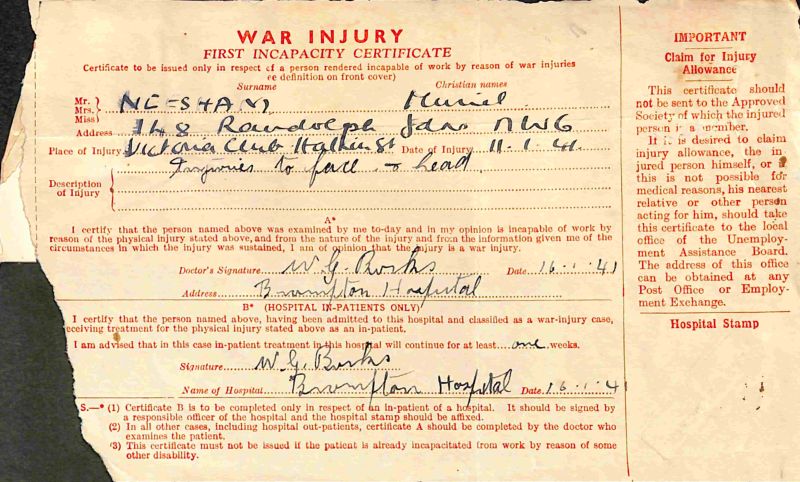 WAR INJURY
FIRST INCAPACITY CERTIFICATE
Certificate to be issued only in respect of a person rendered incapable of work by reason of war injuries
(see definition on front cover)
Surname Christian names
Mr. }
Mrs. } NEESHAM Muriel
Miss }
Address 148 Randolph Gdns NW6
Place of Injury Victoria Club Hallam St Date of Injury 11.1.41.
Injuries to face & head.
Description
of Injury
A*
I certify that the person named above was examined by me to-day and in my opinion is incapable of work by
reason of the physical injury stated above, and from the nature of the injury and from the information given me of the
circumstances in which the injury was sustained, I am of opinion that the injury is a war injury.
Doctor's Signature W. G. Date 16.1.41
Address Brompton Hospital
B* (HOSPITAL IN-PATIENTS ONLY)
I certify that the person named above, having been admitted to this hospital and classified as a war-injury case,
eceiving treatment for the physical injury stated above as an in-patient.
I am advised that in this case in-patient treatment in this hospital will continue for at least one weeks.
Signature W. G.
Name of Hospital Brompton Hospital Date 16.1.41
S.—* (1) Certificate B is to be completed only in respect of an in-patient of a hospital. It should be signed by
a responsible officer of the hospital and the hospital stamp should be affixed.
(2) In all other cases, including hospital out-patients, certificate A should be completed by the doctor who
examines the patient.
(3) This certificate must not be issued if the patient is already incapacitated from work by reason of some
other disability.
IMPORTANT
Claim for Injury
Allowance
This certificate should
not be sent to the Approved
Society of which the injured
person is a member.
If it is desired to claim
injury allowance, the in-
jured person himself, or if
this is not possible for
medical reasons, his nearest
relative or other person
acting for him, should take
this certificate to the local
office of the Unemploy-
ment Assistance Board.
The address of this office
can be obtained at any
Post Office or Employ-
ment Exchange.
Hospital Stamp